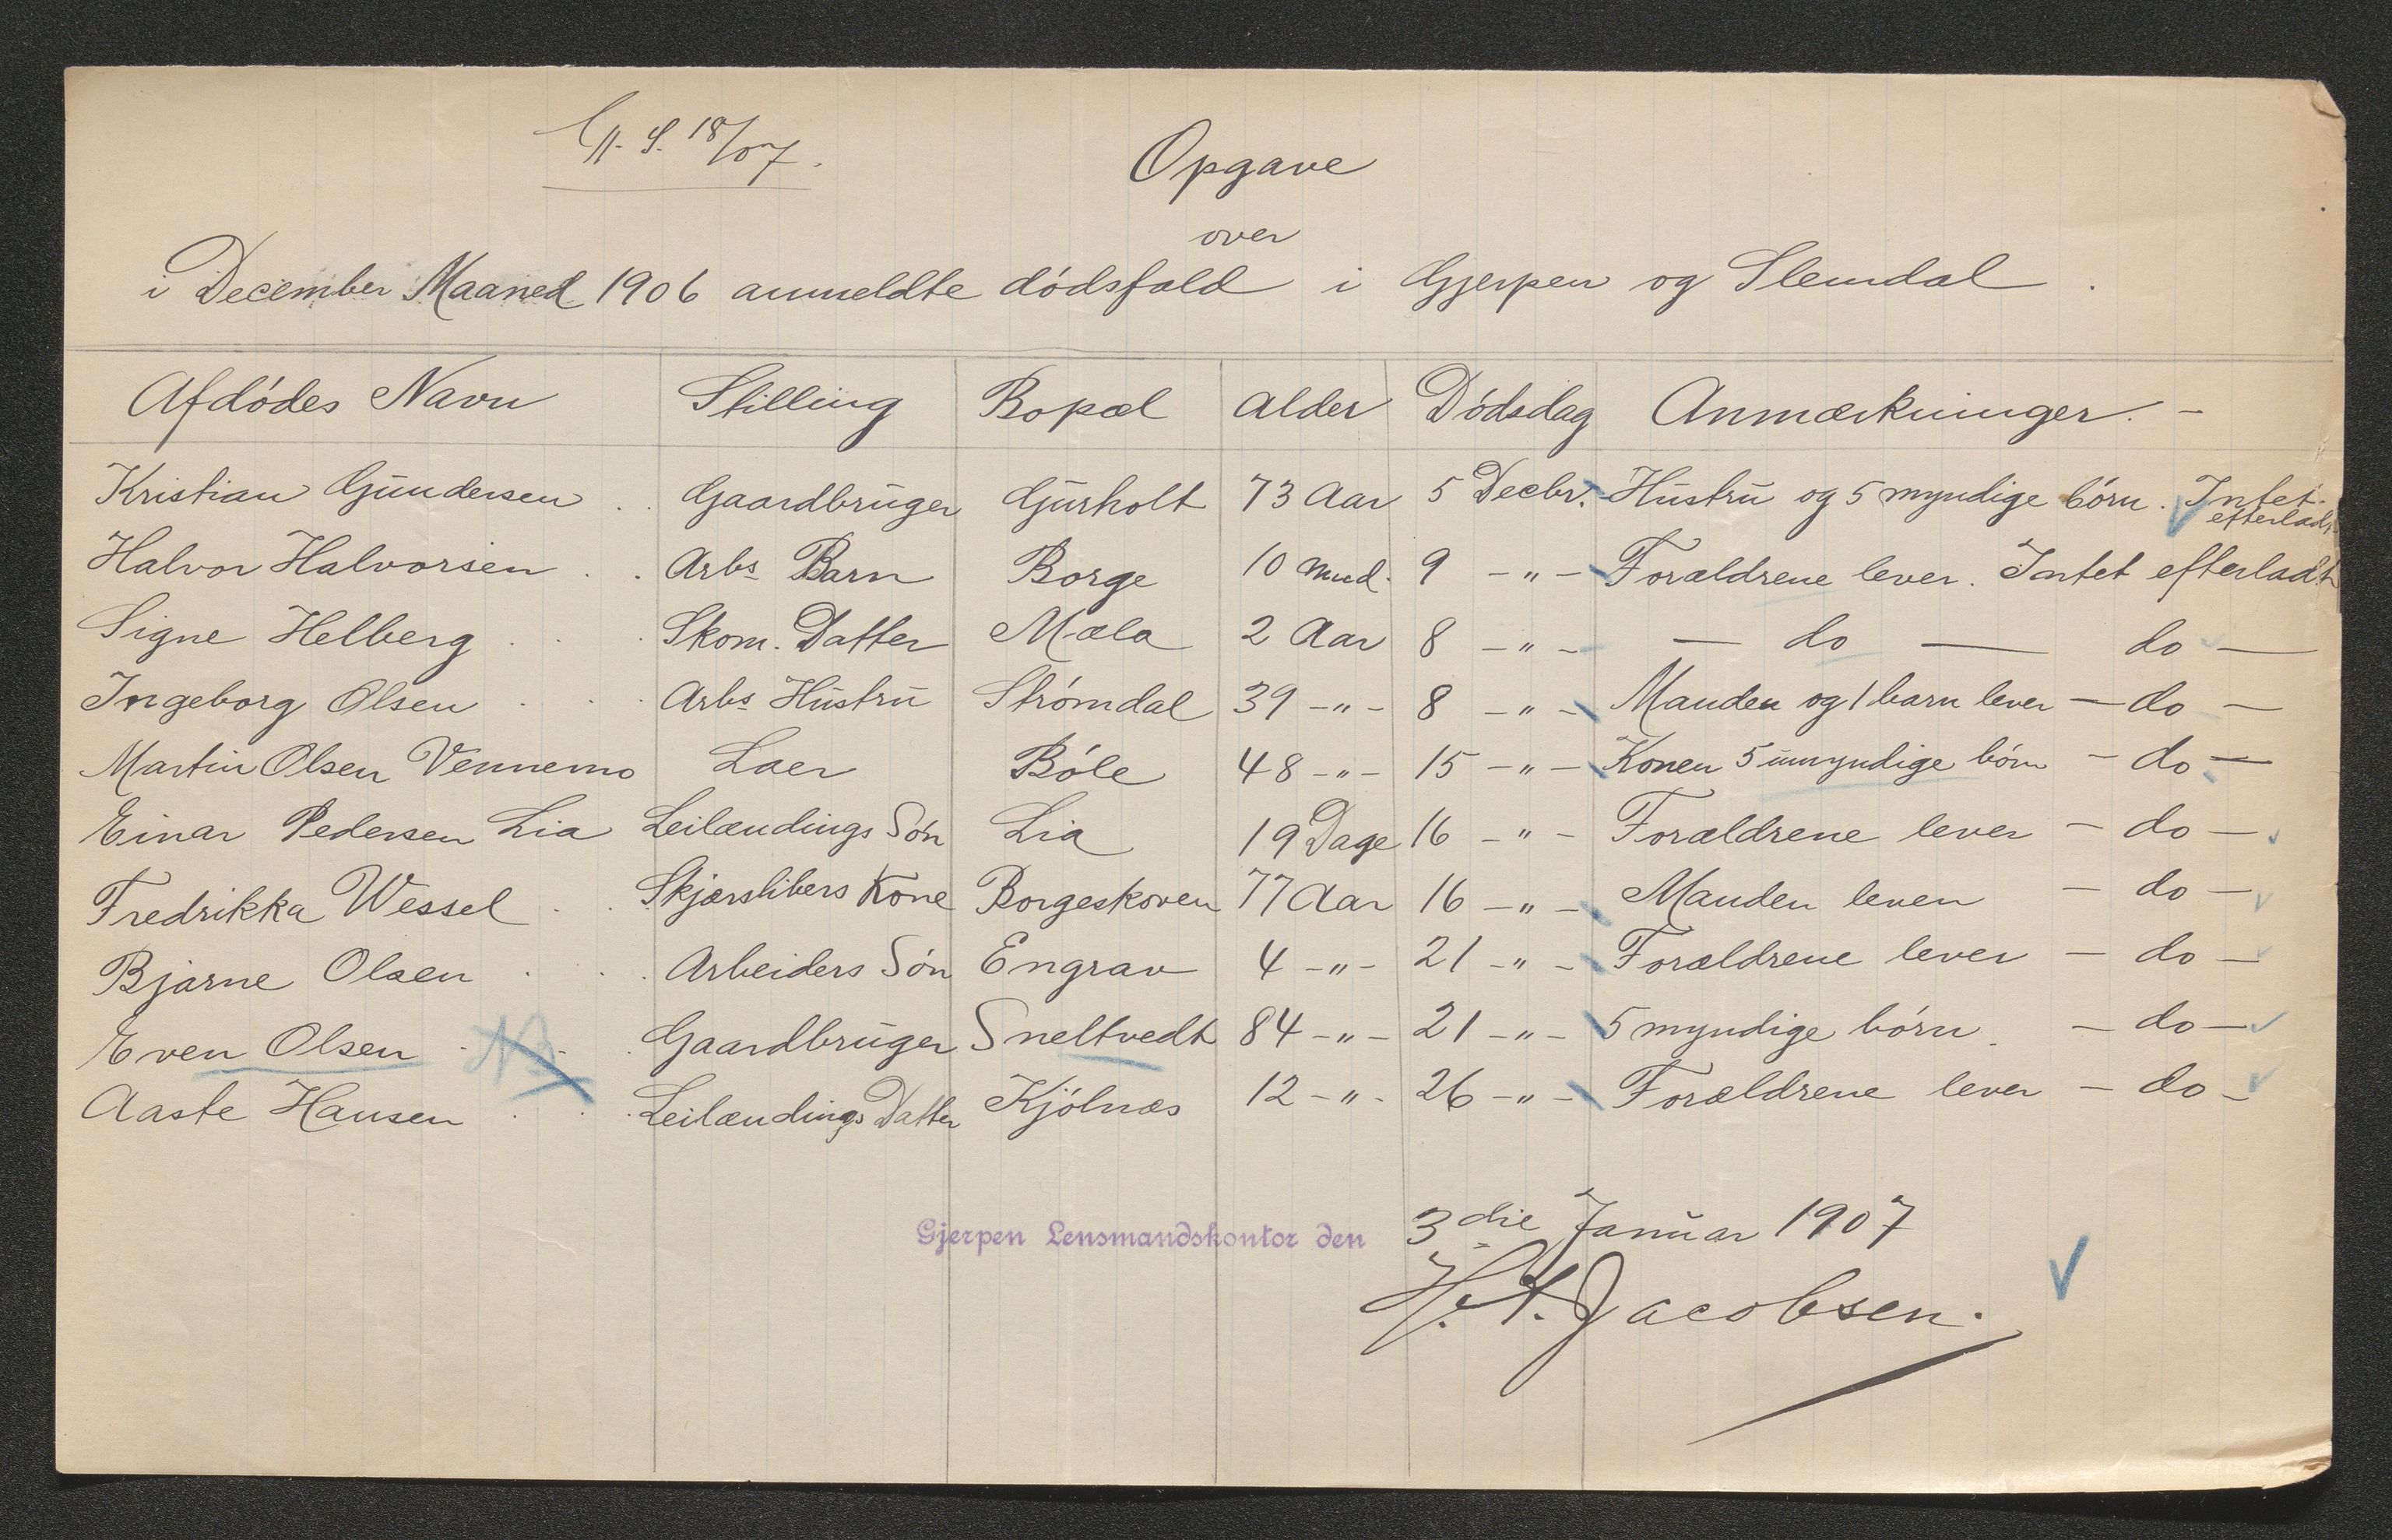 18/07.
Opgave
over
i December Maaned 1906 anmeldte dødsfald i Gjerpen og Slemdal.
Afdødes Navn Stilling Bopæl Alder Dødsdag Anmærkninger. -
Kristian Gundersen . . Gaardbruger Gurholt 73 Aar 5 Decbr. Hustru og 5 myndige børn. Intet efterladt
Halvor Halvorsen . . Arbs Barn Borge 10 Mnd. 9 -"- Forældrene lever. Intet efterladt
Signe Helberg . . . Skom. Datter Mæla 2 Aar 8 -"- - do - do -
Ingeborg Olsen . . . Arbs Hustru Strømdal 39 -"- 8 -"- Manden og 1 barn lever - do -
Martin Olsen Vennemo Læer Bøle 48 -"- 15 -"- Konen 5 umyndige børn - do -
Einar Pedersen Lia Leilændings Søn Lia 19 Dage 16 -"- Forældrene lever - do -
Fredrikka Wessel . . Skjærslibers Kone Borgeskoven 77 Aar 16 -"- Manden lever - do -
Bjarne Olsen . . . Arbeiders Søn Engrav 4 -"- 21 -"- Forældrene lever - do -
Even Olsen . . . Gaardbruger Sneltvedt 84 -"- 21 -"- 5 myndige børn. - do -
Aaste Hansen . . . Leilændings Datter Kjølnæs 12 -"- 26 -"- Forældrene lever - do -
Gjerpen Lensmandskontor den 3die Januar 1907
Jacobsen.